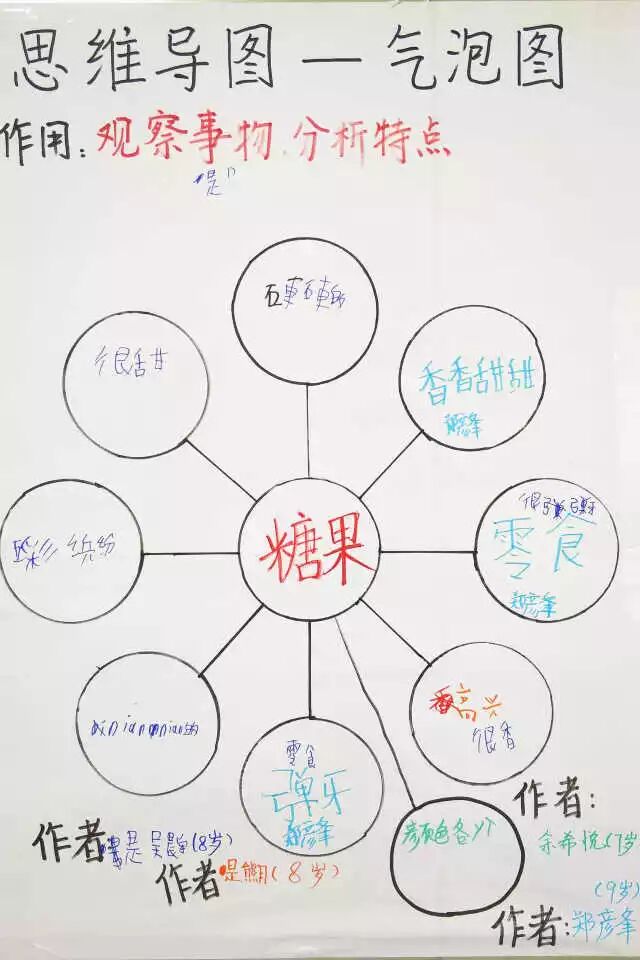 思维导图—气泡图
作用：观察事物、分析特点
"是"
硬硬的
很甜
香香甜甜
郑彦峯
很弹牙
零食
郑彦峯
缤纷
糖果
高兴
很香
零食
弹牙
郑彦峯
颜色各
作者：
余希悦(7岁
作者
吴晨(8岁)
作者
(8岁)
(9岁)
作者：郑彦峯